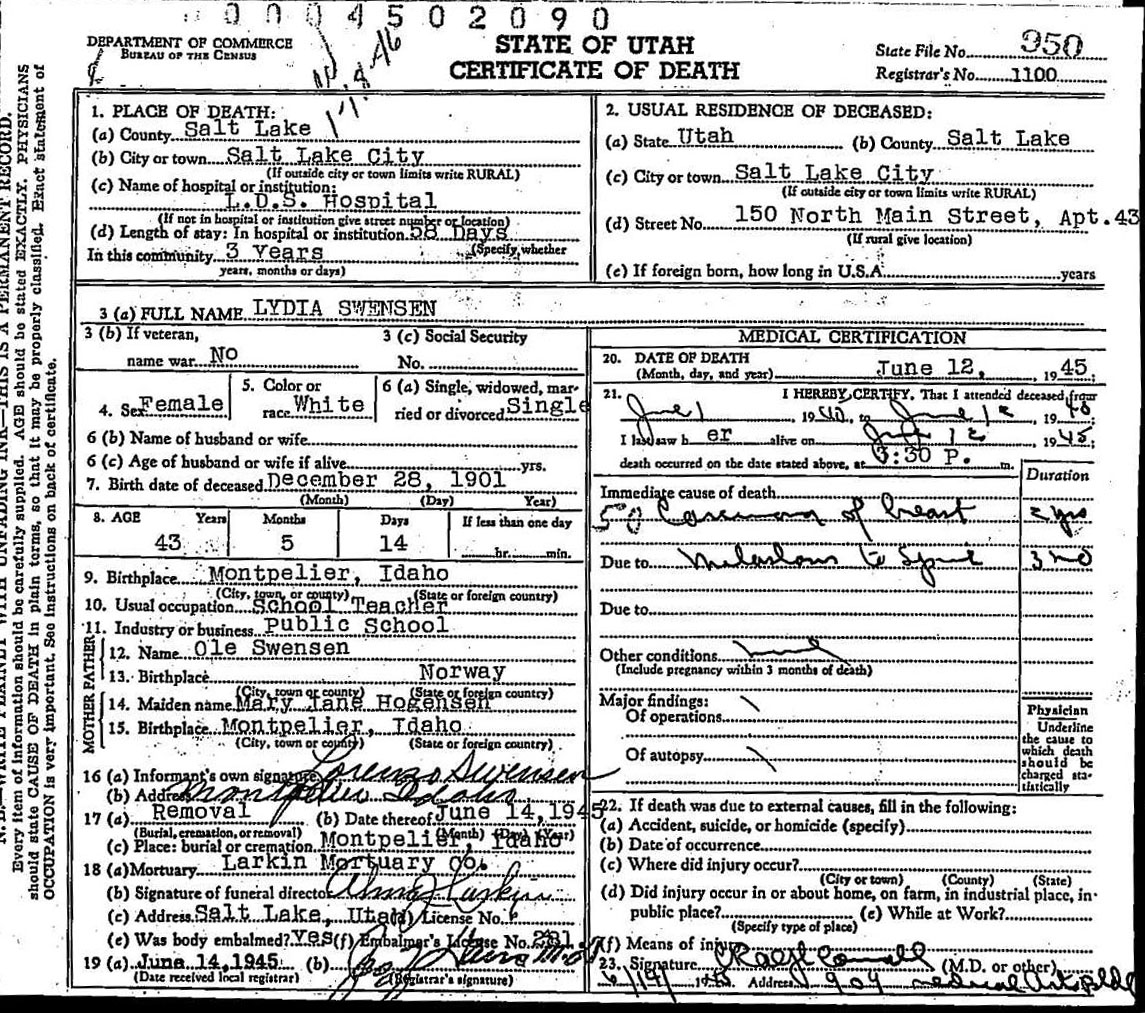 0 0 0 4 5 0 2 0 9 0
DEPARTMENT OF COMMERCE
BUREAU OF THE CENSUS
STATE OF UTAH
CERTIFICATE OF DEATH
State File No. 950
Registrar's No. 1100
1. PLACE OF DEATH:
(a) County Salt Lake
(b) City or town Salt Lake City
(If outside city or town limits write RURAL)
(c) Name of hospital or institution:
L.D.S. Hospital
(If not in hospital or institution give street number or location)
(d) Length of stay: In hospital or institution 58 Days
(Specify whether
In this community 3 Years
years, months or days)
2. USUAL RESIDENCE OF DECEASED:
(a) State Utah (b) County Salt Lake
(c) City or town Salt Lake City
(If outside city or town limits write RURAL)
(d) Street No. 150 North Main Street, Apt.43
(If rural give location)
(e) If foreign born, how long in U.S.A. years
3 (a) FULL NAME LYDIA SWENSEN
3 (b) If veteran, 3 (c) Social Security
name war. No No.
4. Sex Female
5. Color or
race White
6 (a) Single, widowed, mar-
ried or divorced Single
6 (b) Name of husband or wife
6 (c) Age of husband or wife if alive yrs.
7. Birth date of deceased December 28, 1901
(Month) (Day) Year)
8. AGE Years Months Days If less than one day
43 5 14 hr. min.
9. Birthplace Montpelier, Idaho
(City, town, or county) (State or foreign country)
10. Usual occupation School Teacher
11. Industry or business Public School
FATHER
12. Name Ole Swensen
13. Birthplace Norway
(City, town or county) (State or foreign country)
MOTHER
14. Maiden name Mary Jane Hogensen
15. Birthplace Montpelier, Idaho
(City, town or county) (State or foreign country)
16 (a) Informant's own signature Lorenzo Swensen
(b) Address Montpelier Idaho
17 (a) Removal (b) Date thereof June 14, 1945
(Burial, cremation, or removal) (Month) (Day) (Year)
(c) Place: burial or cremation Montpelier, Idaho
18 (a) Mortuary Larkin Mortuary Co.
(b) Signature of funeral director Larkin
(c) Address Salt Lake, Utah (d) License No.
(e) Was body embalmed? Yes (f) Embalmer's License No. 281
19 (a) June 14, 1945 (b)
(Date received local registrar) (Registrar's signature)
MEDICAL CERTIFICATION
20. DATE OF DEATH
(Month, day, and year) June 12, 1945;
21. I HEREBY CERTIFY, That I attended deceased from
June 1 19 to June 12 19
I last saw h er alive on June 12 1945;
death occurred on the date stated above, at :30 P. m.
Duration
Immediate cause of death
50 Carcinoma of breast 2 yrs
Due to to Spine 3 mo
Due to
Other conditions
(Include pregnancy within 3 months of death)
Major findings:
Of operations
Of autopsy
Physician
Underline
the cause to
which death
should be
charged sta-
tistically
22. If death was due to external causes, fill in the following:
(a) Accident, suicide, or homicide (specify)
(b) Date of occurrence
(c) Where did injury occur?
(City or town) (County) (State)
(d) Did injury occur in or about home, on farm, in industrial place, in
public place? (e) While at Work?
(Specify type of place)
(f) Means of injury
23. Signature (M.D. or other)
1945 Address 904 Medical Arts Bldg
N.B.—WRITE PLAINLY WITH UNFADING INK—THIS IS A PERMANENT RECORD.
Every item of information should be carefully supplied. AGE should be stated EXACTLY. PHYSICIANS
should state CAUSE OF DEATH in plain terms, so that it may be properly classified. Exact statement of
OCCUPATION is very important. See instructions on back of certificate.